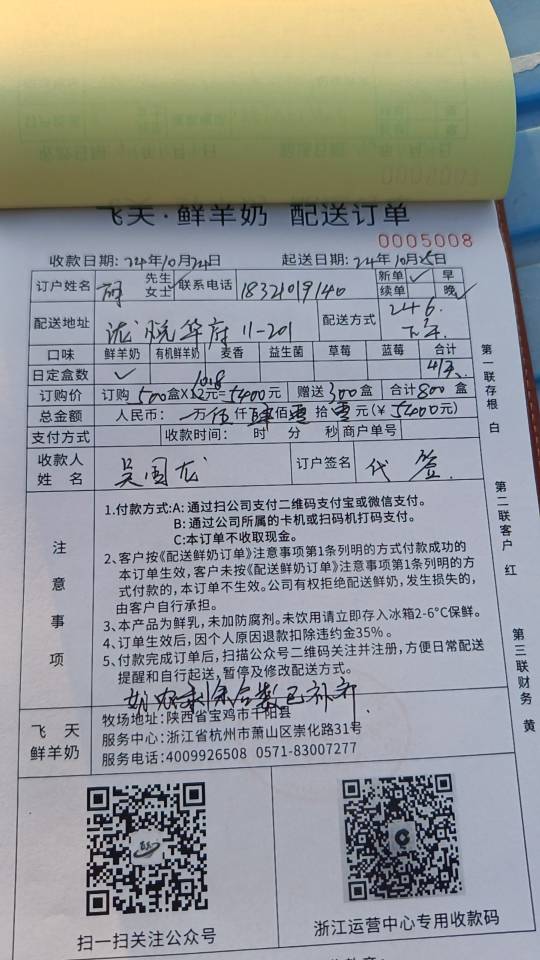 飞天·鲜羊奶 配送订单
0005008
收款日期:24年10月24日 起送日期:24年10月25日
订户姓名 先生 女士 联系电话 18321019140 新单 ✓ 续单 早 晚 ✓
配送地址 11-201 配送方式 246. 下午
口味 鲜羊奶 有机鲜羊奶 麦香 益生菌 草莓 蓝莓 合计
日定盒数 ✓ 4/天
订购价 订购500盒X12元=5400元 10.8 赠送300盒 合计800盒
总金额 人民币: 万伍仟肆佰零拾零元(¥5400元)
支付方式 收款时间: 时 分 秒 商户单号
收款人姓名 吴国龙 订户签名 代签.
注意事项
1.付款方式:A: 通过扫公司支付二维码支付宝或微信支付。
B: 通过公司所属的卡机或扫码机打码支付。
C:本订单不收取现金。
2、客户按《配送鲜奶订单》注意事项第1条列明的方式付款成功的
本订单生效,客户未按《配送鲜奶订单》注意事项第1条列明的方
式付款的,本订单不生效。公司有权拒绝配送鲜奶,发生损失的,
由客户自行承担。
3、本产品为鲜乳,未加防腐剂。未饮用请立即存入冰箱2-6°C保鲜。
4、订单生效后,因个人原因退款扣除违约金35%。
5、付款完成订单后,扫描公众号二维码关注并注册,方便日常配送
提醒和自行起送,暂停及修改配送方式。
剩余合数已补齐.
飞天鲜羊奶
牧场地址:陕西省宝鸡市千阳县
服务中心:浙江省杭州市萧山区崇化路31号
服务电话:4009926508 0571-83007277
第一联存根 白
第二联客户 红
第三联财务 黄
扫一扫关注公众号
浙江运营中心专用收款码